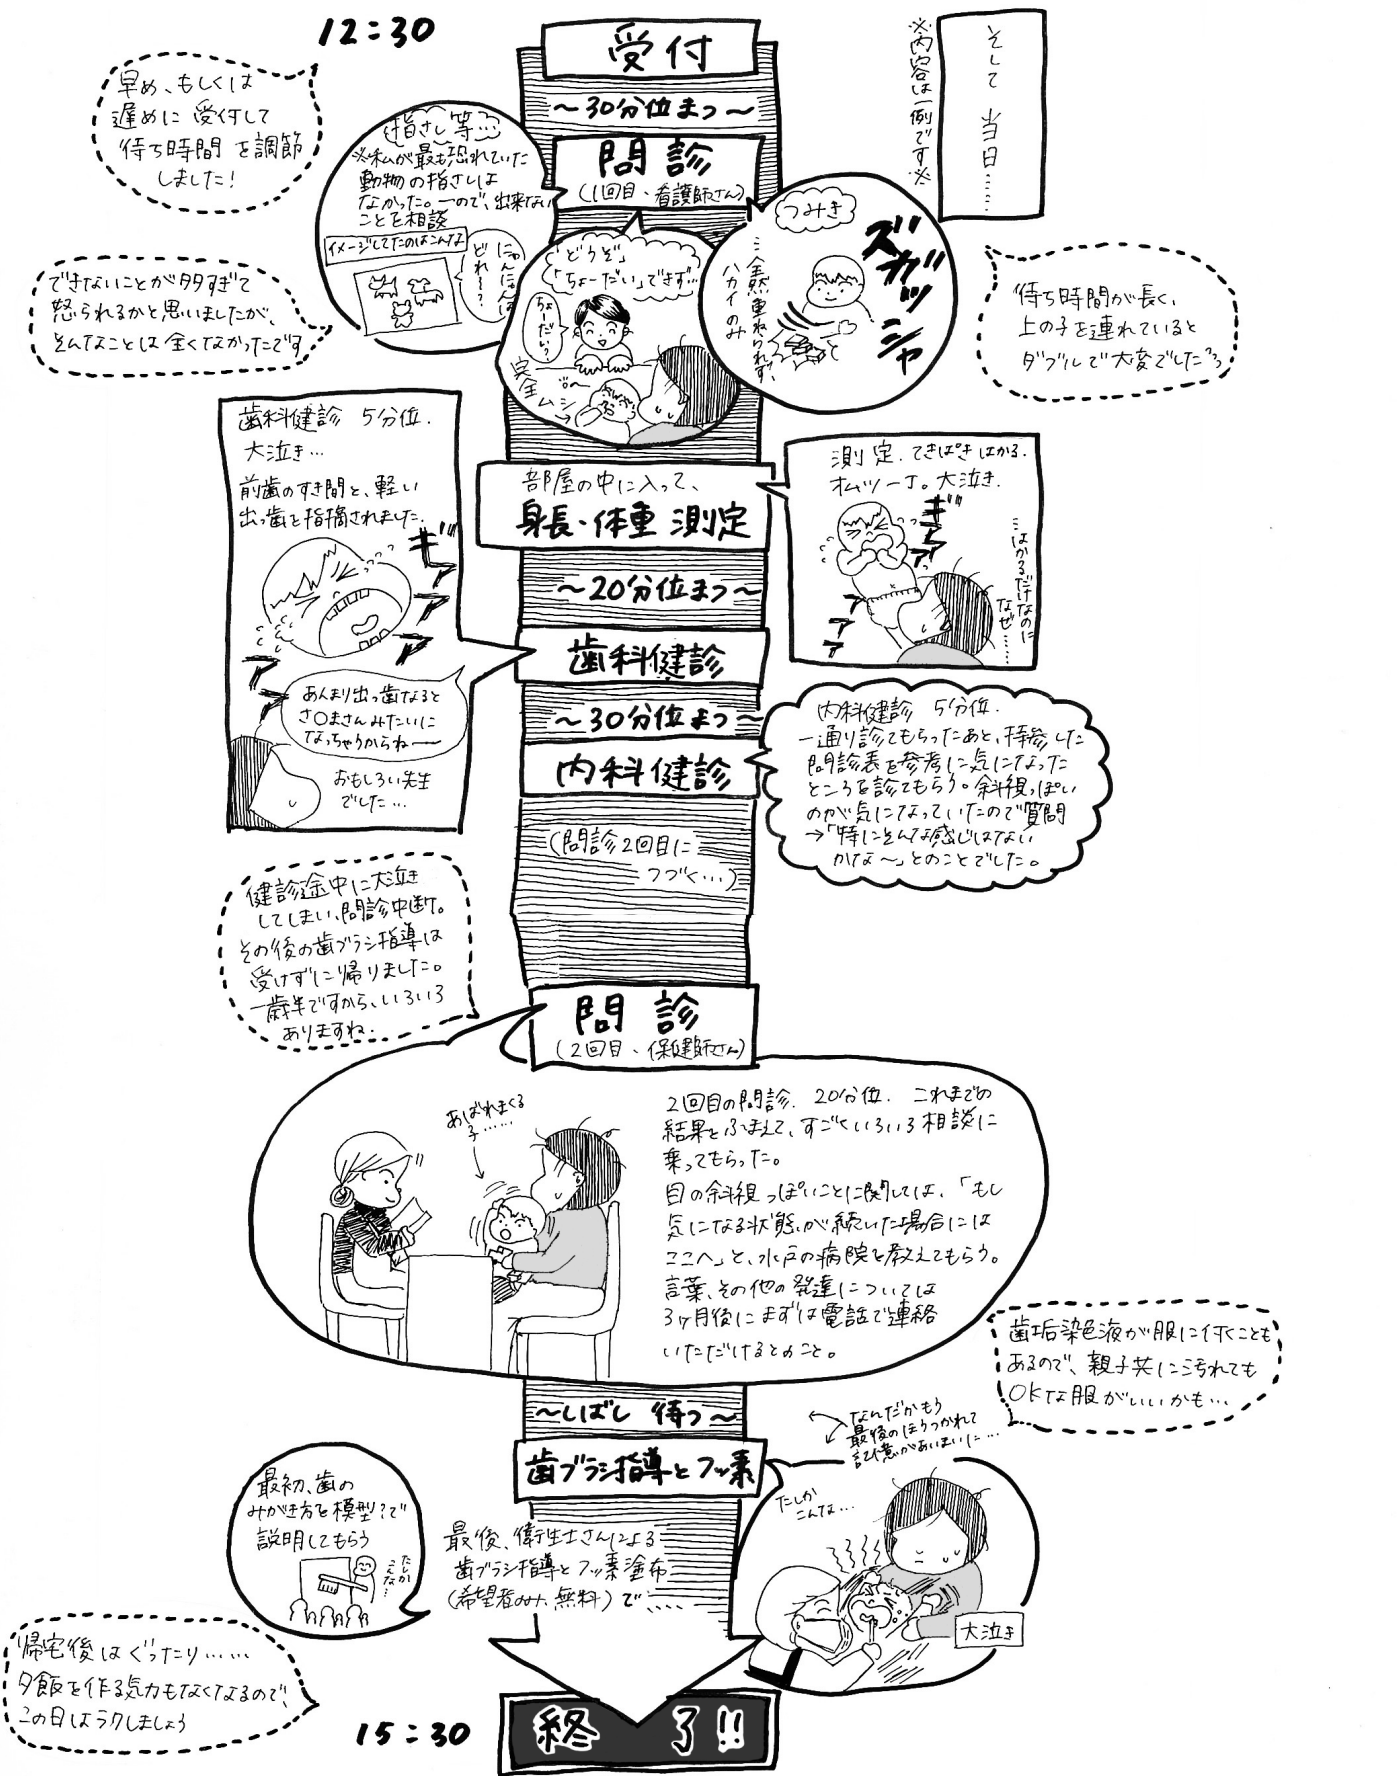 そして 当日……
※内容は一例です※
12:30
受付
～30分位まつ～
早め、もしくは
遅めに 受付して
待ち時間を調節
しました！
問診
(1回目、看護師さん)
指さし等…
※私が最も恐れていた
動物の指さしは
なかった。ーので、出来ない
ことを相談
イメージしてたのはこんな
にゃんにゃんは
どれ〜？
「どうぞ」
「ちょーだい」できず…
ちょーだい？
完全ムシ→
つみき
ズガッシャ
…全然重ねられず、
ハカイのみ
できないことが多すぎて
怒られるかと思いましたが、
そんなことは全くなかったです
待ち時間が長く、
上の子を連れていると
ダブルで大変でした
部屋の中に入って、
身長・体重 測定
測定、てきぱきはかる。
オムツ一丁。大泣き。
ギャアアアア
…はかるだけなのに
なぜ……
～20分位まつ～
歯科健診
歯科健診 5分位.
大泣き…
前歯のすき間と、軽い
出っ歯を指摘されました.
ギャアアアア
あんまり出っ歯なると
さ○まさんみたいに
なっちゃうからねー
おもしろい先生
でした…
～30分位まつ～
内科健診
内科健診 5分位.
一通り診てもらったあと、持参した
問診表を参考に気になった
ところを診てもらう。斜視っぽい
のが気になっていたので質問
→「特にそんな感じはない
かな～」とのことでした。
(問診2回目に
つづく…)
健診途中に大泣き
してしまい、問診中断。
その後の歯ブラシ指導は
受けずに帰りました。
一歳半ですから、いろいろ
ありますね.
問診
(2回目、保健師さん)
あばれまくる
子……
2回目の問診. 20分位. これまでの
結果をふまえて、すごくいろいろ相談に
乗ってもらった。
目の斜視っぽいことに関しては、「もし
気になる状態が続いた場合には
ここへ」と、水戸の病院を教えてもらう。
言葉、その他の発達については
3ヶ月後にまずは電話で連絡
いただけるとのこと。
～しばし 待つ～
歯垢染色液が服に付くことも
あるので、親子共に汚れても
OKな服がいいかも…
歯ブラシ指導とフッ素
なんだかもう
最後のほうつかれて
記憶があいまいに…
たしか
こんな…
大泣き
最初、歯の
みがき方を模型？で
説明してもらう
たしか
こんな…
最後、衛生士さんによる
歯ブラシ指導とフッ素塗布
(希望者のみ、無料)で……
帰宅後はぐったり……
夕飯を作る気力もなくなるので、
この日はラクしましょう
15:30
終了!!